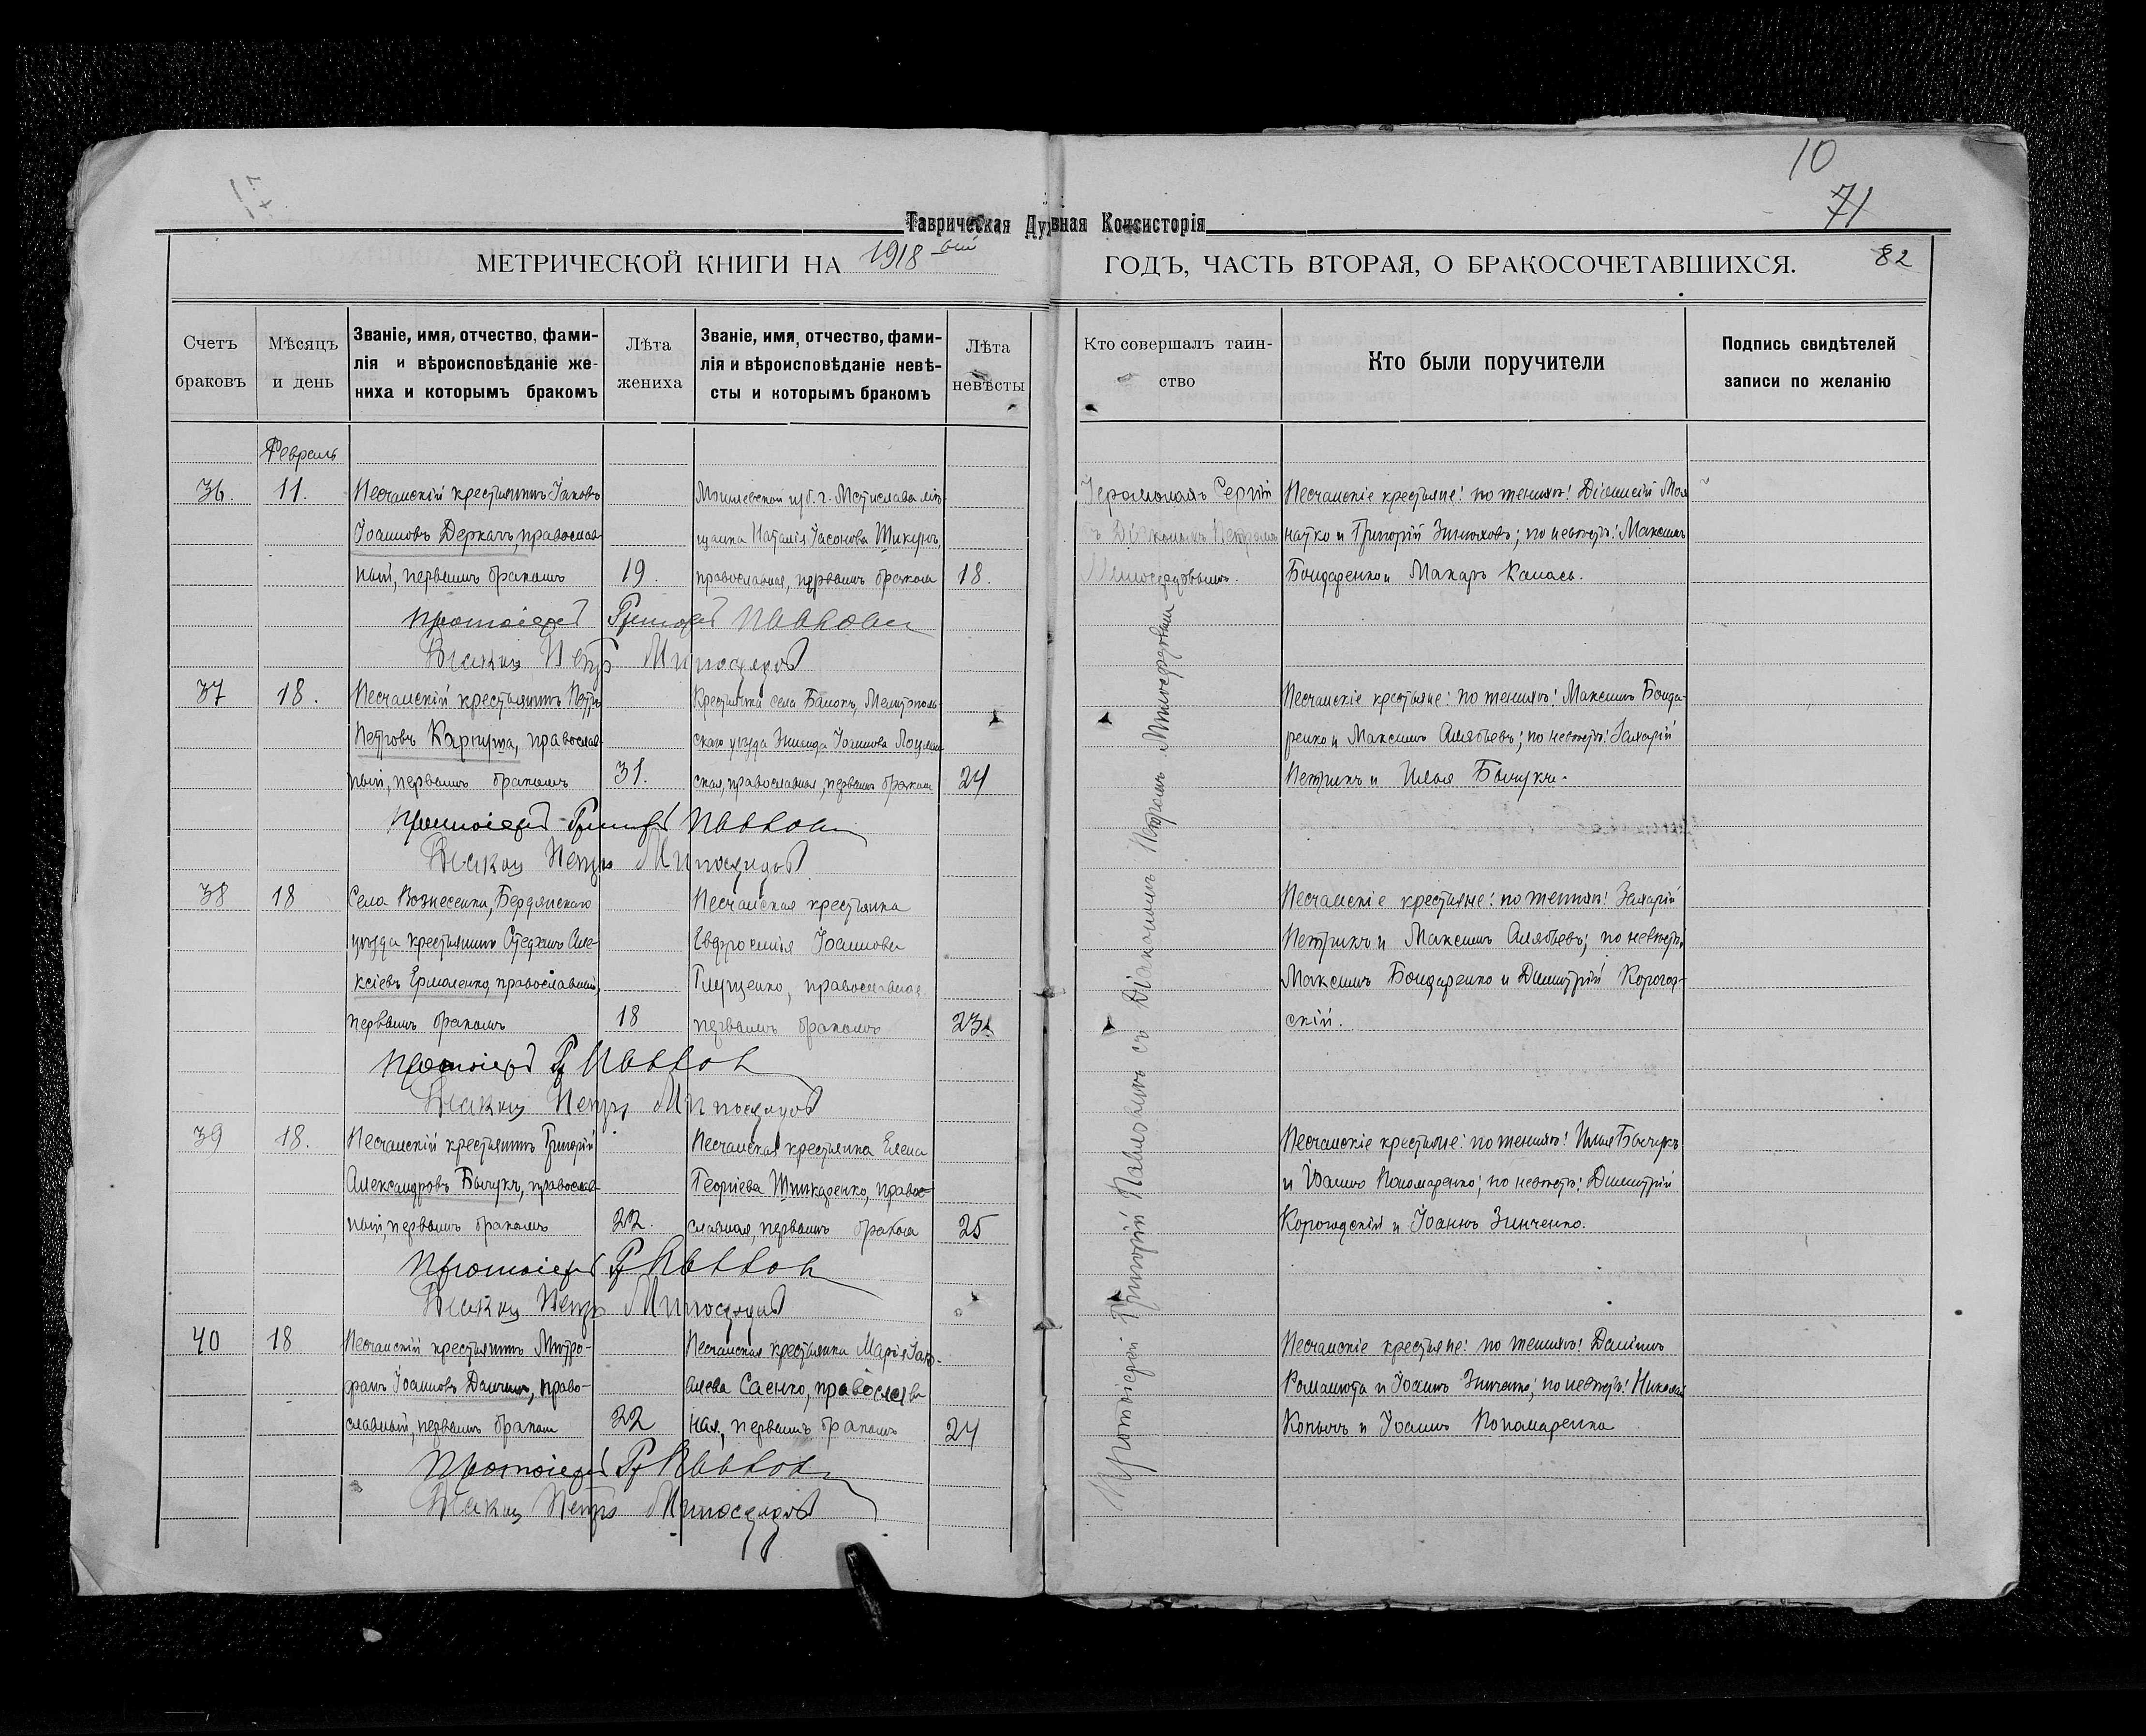 10
71
Таврическая Духовная Консисторія
МЕТРИЧЕСКОЙ КНИГИ НА 1918 ГОДЪ, ЧАСТЬ ВТОРАЯ, О БРАКОСОЧЕТАВШИХСЯ.
82
Счетъ браковъ
Мѣсяцъ и день
Званіе, имя, отчество, фами-
лія и вѣроисповѣданіе же-
ниха и которымъ бракомъ
Лѣта жениха
Званіе, имя, отчество, фами-
лія и вѣроисповѣданіе невѣ-
сты и которымъ бракомъ
Лѣта невѣсты
Кто совершалъ таин-
ство
Кто были поручители
Подпись свидѣтелей
записи по желанію
Февраль
36.
11.
Песчанскій крестьянинъ Іаковъ
Іоанновъ Деркачъ, православ-
ный, первымъ бракомъ
19.
Могилевской губ. г. Мстиславля мѣ-
щанка Наталія Іасонова
православная, первымъ бракомъ
18.
Іеромонахъ Сергій
съ Діакономъ Петромъ
Милосердовымъ.
Песчанскіе крестьяне: по женихѣ:
и Григорій; по невѣстѣ: Максимъ
Бондаренко и Макаръ Канась.
Протоіерей Григорій Павловъ
Діаконъ Петръ Милосердовъ
37
18.
Песчанскій крестьянинъ Петръ
Петровъ, православ-
ный, первымъ бракомъ
31.
Крестьянка села Балокъ, Мелитополь-
скаго уѣзда Іоаннова
ская, православная, первымъ бракомъ
24
Песчанскіе крестьяне: по женихѣ: Максимъ Бонда-
ренко и Максимъ Алябьевъ; по невѣстѣ: Захарій
Петрикъ и Илья Бычукъ.
Протоіерей Григорій Павловъ
Діаконъ Петръ Милосердовъ
38
18
Села Вознесенки, Бердянскаго
уѣзда крестьянинъ Стефанъ Але-
ксіевъ Ермоленко, православный,
первымъ бракомъ
18
Песчанская крестьянка
Евфросинія Іоаннова
Глущенко, православная
первымъ бракомъ
23
Песчанскіе крестьяне: по женихѣ: Захарій
Петрикъ и Максимъ Алябьевъ; по невѣстѣ:
Максимъ Бондаренко и Димитрій Корогод-
скій.
Протоіерей Гр Павловъ
Діаконъ Петръ Милосердовъ
39
18.
Песчанскій крестьянинъ Григорій
Александровъ Бычукъ, православ-
ный, первымъ бракомъ
22.
Песчанская крестьянка Елена
Георгіева Шинкаренко, право-
славная, первымъ бракомъ
25
Песчанскіе крестьяне: по женихѣ: Илья Бычукъ
и Іоаннъ Пономаренко; по невѣстѣ: Димитрій
Корогодскій и Іоаннъ Зинченко.
Протоіерей Гр Павловъ
Діаконъ Петръ Милосердовъ
40
18
Песчанскій крестьянинъ Митро-
фанъ Іоанновъ, право-
славный, первымъ бракомъ
22
Песчанская крестьянка Марія Іако-
влева Саенко, православ
ная, первымъ бракомъ
24
Песчанскіе крестьяне: по женихѣ: Даніилъ
Романюта и Іоаннъ Зинченко; по невѣстѣ: Николай
и Іоаннъ Пономаренко
Протоіерей Гр Павловъ
Діаконъ Петръ Милосердовъ
Протоіерей Григорій Павловъ съ Діакономъ Петромъ Милосердовымъ